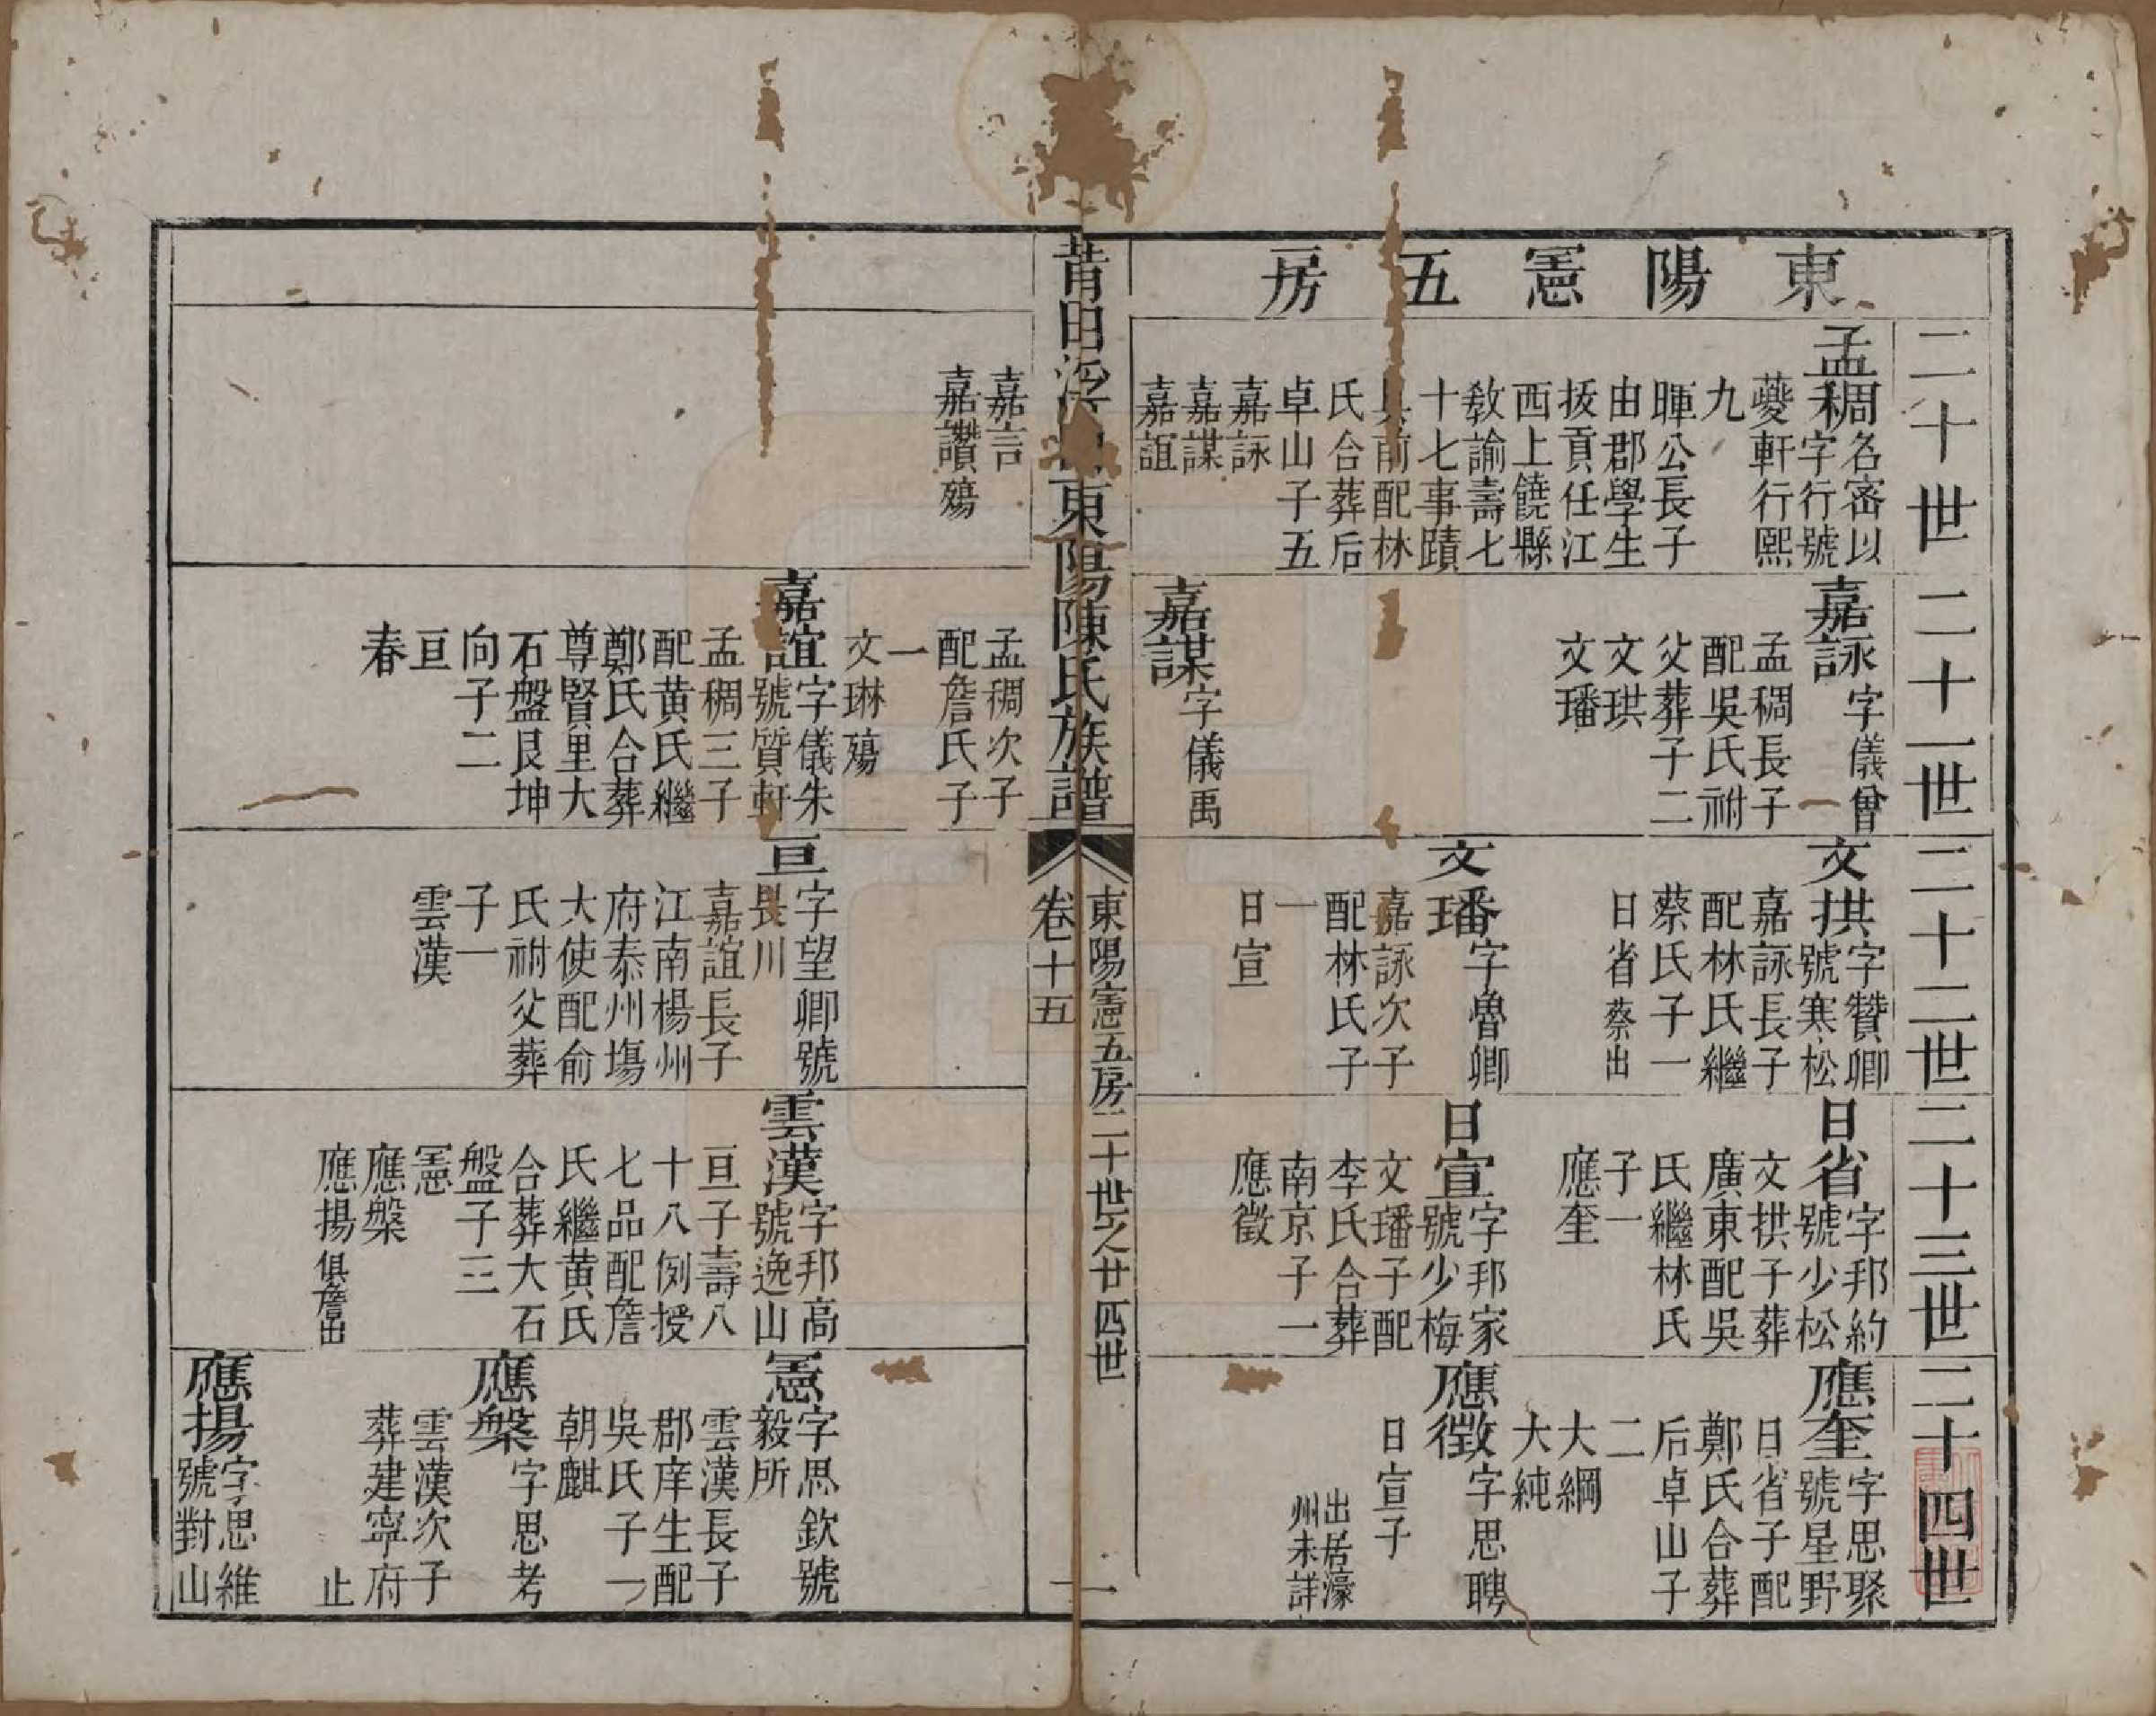 東陽憲五房
二十世
孟稠名密以
字行號
夔軒行熙
九
暉公長子
由郡學生
拔貢任江
西上饒縣
敎諭壽七
十七事蹟
具前配林
氏合葬后
卓山子五
嘉詠
嘉謀
嘉誼
二十一世
嘉詠字儀曾
孟稠長子
配吳氏祔
父葬子二
文珙
文璠
嘉謀字儀禹
二十二世
文拱字贊卿
號寒松
嘉詠長子
配林氏繼
蔡氏子一
日省蔡出
文璠字魯卿
嘉詠次子
配林氏子
一
日宣
二十三世
日省字邦約
號少松
文拱子葬
廣東配吳
氏繼林氏
子一
應奎
日宣字邦家
號少梅
文璠子配
李氏合葬
南京子一
應徵
二十四世
應奎字思聚
號星野
日省子配
鄭氏合葬
后卓山子
二
大綱
大純
應徵字思聘
日宣子
出居濠
州未詳
莆田浮東陽陳氏族譜
卷十五
東陽憲五房二十世之廿四世
一
嘉言
嘉讚殤
孟稠次子
配詹氏子
一
文琳殤
嘉誼字儀朱
號質軒
孟稠三子
配黄氏繼
鄭氏合葬
尊賢里大
石盤艮坤
向子二
亘
春
亘字望卿號
長川
嘉誼長子
江南楊州
府泰州塲
大使配俞
氏祔父葬
子一
雲漢
雲漢字邦高
號逸山
亘子壽八
十八例授
七品配詹
氏繼黄氏
合葬大石
盤子三
憲
應槃
應揚俱詹出
憲字思欽號
毅所
雲漢長子
郡庠生配
吳氏子一
朝麒
應槃字思考
雲漢次子
葬建寧府
止
應揚字思維
號對山